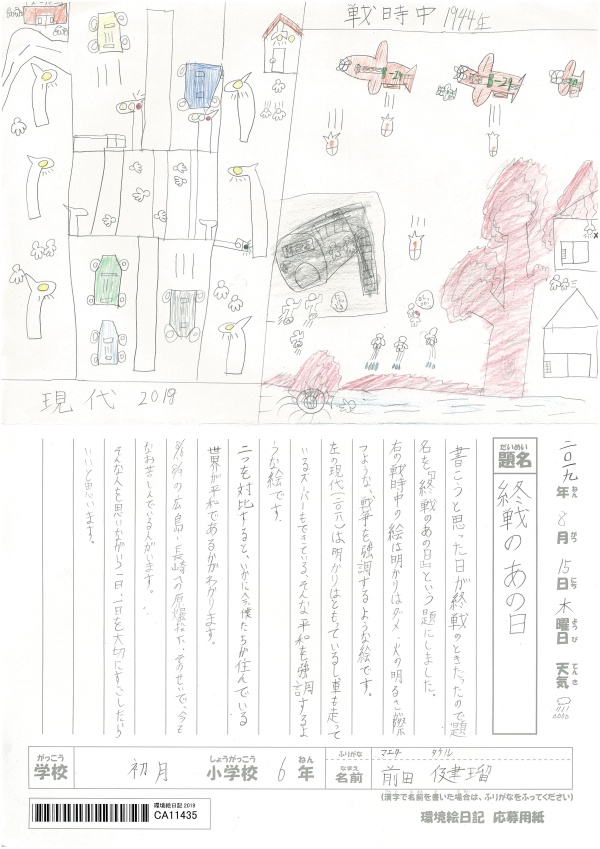 戦時中 1944年
B-29
B-29
現代 2019
二〇一九年 8月 15日 木曜日 天気
ねん がつ にち ようび てんき
だいめい
題名
終戦のあの日
書こうと思った日が終戦のときだったので題
名を「終戦のあの日」という題にしました。
右の戦時中の絵は明かりはダメ・火の明るさが際
つような、戦争を強調するような絵です。
左の現代(二〇一九)は明かりはともっているし、車も走って
いるスーパーもできている、そんな平和を強調するよ
うな絵です。
二つを対比すると、いかに今、僕たちが住んでいる
世界が平和であるかがわかります。
8/6 8/9の広島・長崎への原爆 せいで、今も
なお苦しんでいる人がいます。
そんな人を思いながら一日、一日を大切にすごしたら
いいと思います。
がっこう
学校
初月
しょうがっこう
小学校
6
ねん
年
ふりがな
マエダ タケル
なまえ
名前
前田 健瑠
(漢字で名前を書いた場合は、ふりがなをふってください)
環境絵日記 2019
CA11435
環境絵日記 応募用紙